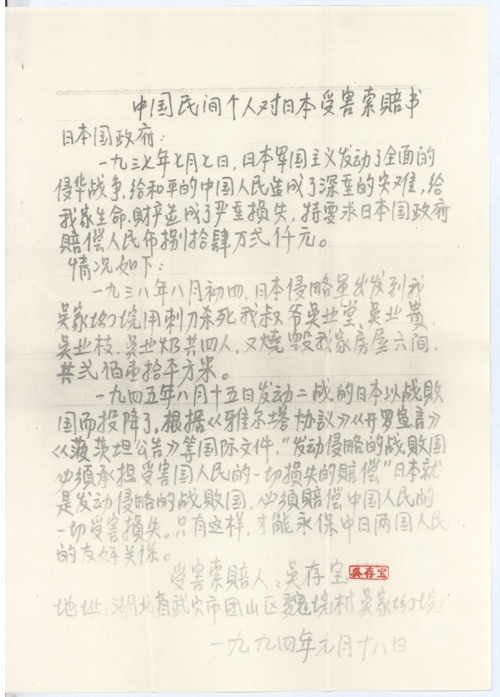 中国民间个人对日本受害索赔书
日本国政府：
一九三七年七月七日，日本军国主义发动了全面的
侵华战争，给和平的中国人民造成了深重的灾难，给
我家生命、财产造成了严重损失，特要求日本国政府
赔偿人民币捌拾肆万弍仟元。
情况如下：
一九三八年八月初四，日本侵略军出发到我
吴家坳垸用刺刀杀死我叔爷吴业堂、吴业贵、
吴业枝、吴业 共四人，又燒毁我家房屋六间，
共弍佰 拾平方米。
一九四五年八月十五日发动二战的日本以战败
国而投降了。根据《雅尔塔协议》《开罗宣言》
《菠茨坦公告》等国际文件，“发动侵略的战败国
必须承担受害国人民的一切损失的赔偿”日本就
是发动侵略的战败国，必须赔偿中国人民的
一切受害损失。只有这样，才能永保中日两国人民
的友好关係。
受害索赔人：吴存宝
吳存宝
地址：湖北省武穴市团山区魏垸村吴家坳垸
一九九四年元月十八日